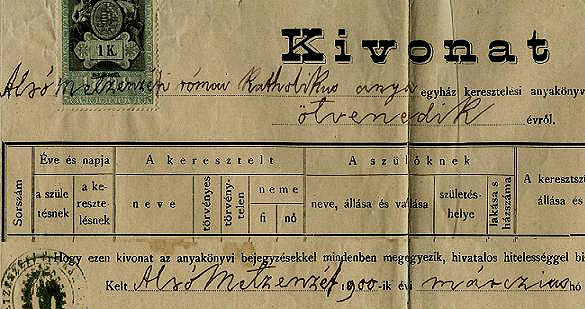 1 K.
Kivonat
Alsó Metzenzéfi római katholikus anya egyház keresztelési anyakönyv
ötvenedik évről.
Sorszám
Éve és napja
a szüle
tésnek
a ke-
reszte-
lésnek
A keresztelt
neve
törvényes
törvény-
telen
neme
fi nő
A szülőknek
neve, állása és vallása
születés-
helye
lakása s
házszáma
A keresztsz
állása és
Hogy ezen kivonat az anyakönyvi bejegyzésekkel mindenben megegyezik, hivatalos hitelességgel bi
Kelt Alsó Metzenzéf 1900-ik évi márczius hó